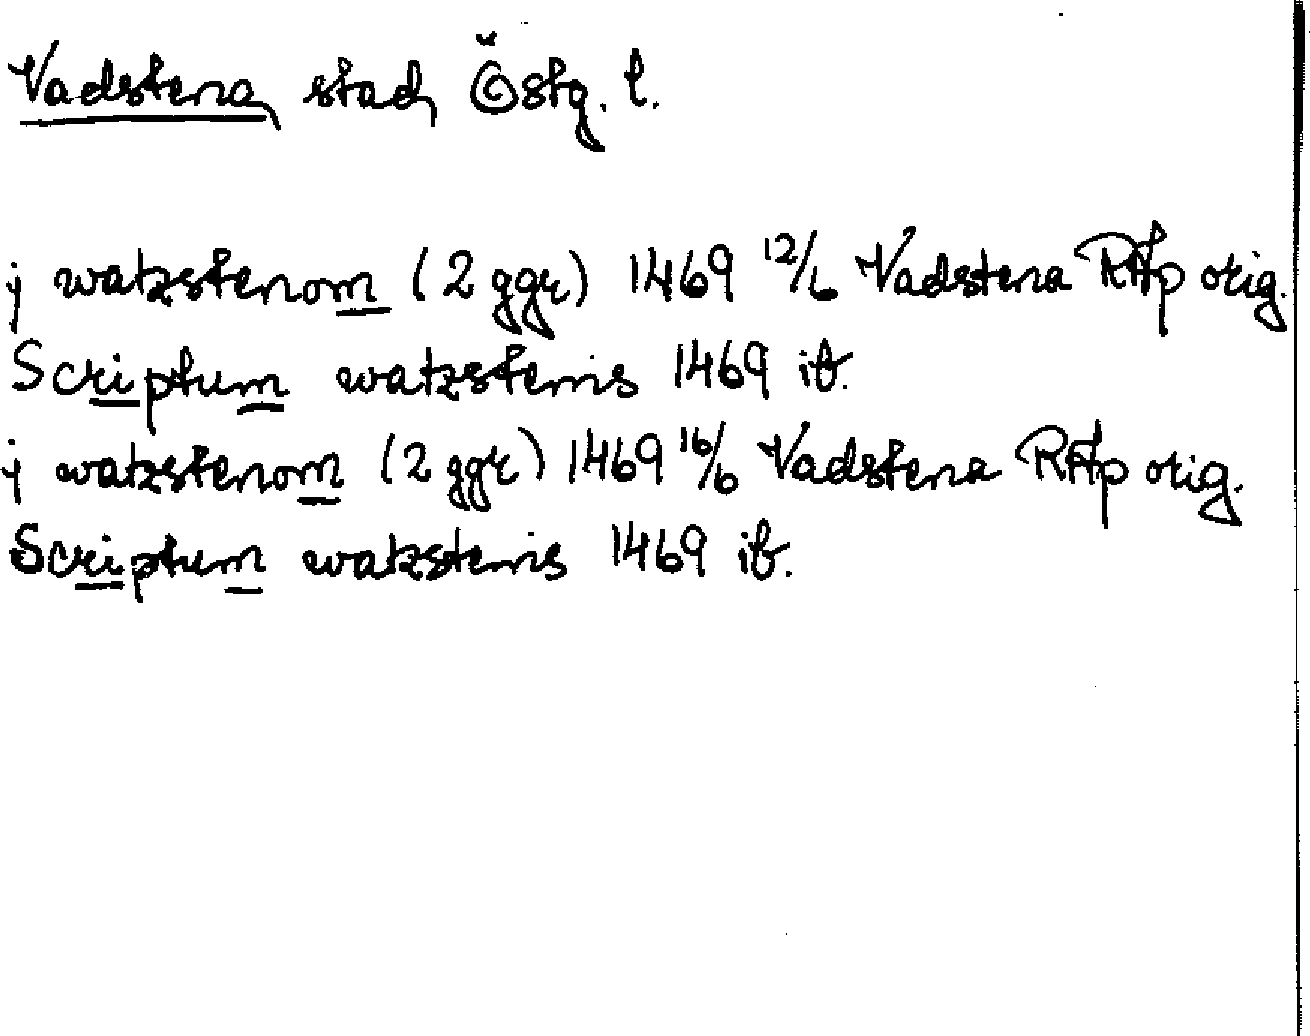 Vadstena, stad, Östg. l.
j watzstenom (2 ggr) 1469 12/6 Vadstena RAp orig.
Scriptum watzstenis 1469 ib.
j watzstenom (2 ggr) 1469 16/6 Vadstena RAp orig.
Scriptum watzstenis 1469 ib.